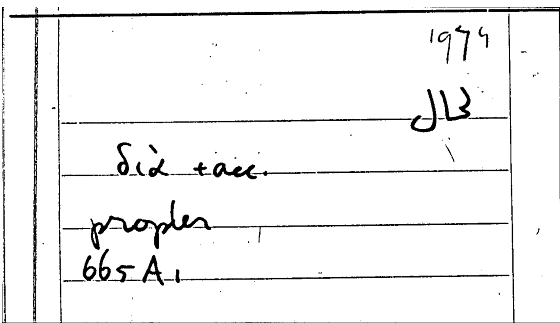 1974
JB
διὰ +acc.
propter
665A1